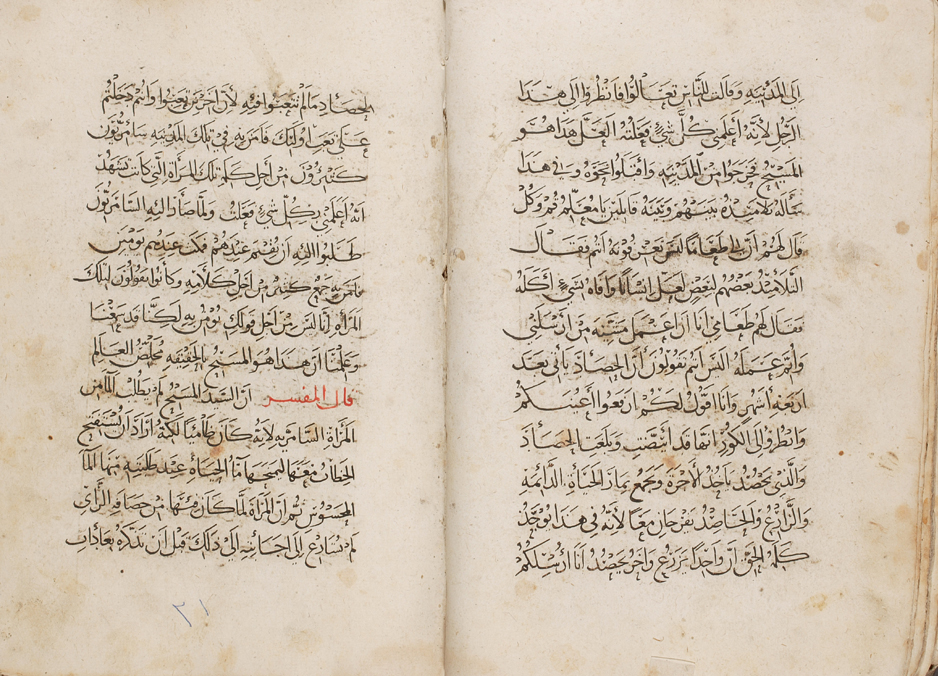 الى المدينه وقالت للناس تعالوا فانظروا الى هذا
الرجل لأنه أعلمني كل شيء فعلته العل هذا هو
المسيح فخرجوا من المدينه وأقبلوا نحوه وفي هذا
سأله تلاميذه بينهم وبينه قايلين يا معلم قم وكل
قال لهم ان لي طعاما لستم تعرفونه انتم فقال
التلاميذ بعضهم لبعض لعل انسانا وافاه بشيء أكله
فقال لهم طعامي أنا ان اعمل مشيئه من أرسلني
وأتم عمله اليس انتم تقولون أن الحصاد يأتي بعد
اربعة أشهر وأنا اقول لكم ارفعوا أعينكم
وانظروا الى الكور انها قد ابيضت وبلغت الحصاد
والذي يحصد يأخذ الأجرة ويجمع ثمار الحياة الدائمه
والزارع والحاصد يفرحان معا لأنه في هذا يوجد
كلمة الحق أن واحدا يزرع واخر يحصد أنا ارسلتكم
لحصاد ما لم تتعبوا فيه لأن اخرين تعبوا وانتم دخلتم
على تعب اوليك فامن به في تلك المدينه سامريون
كثيرون من أجل كلام تلك المرأة التي كانت تشهد
انه أعلمني بكل شيء فعلت ولما صار اليه السامريون
طلبوا اليه ان يقيم عندهم فمكث عندهم يومين
فامن به جمع كثير من اجل كلامه وكانوا يقولون لتلك
المرأه إنا ليس من اجل قولك نؤمن به لكنا قد سمعنا
وعلمنا أن هذا هو المسيح بالحقيقه مخلص العالم
قال المفسر ان السيد المسيح لم يطلب الماء من
المرأة السامريه لأنه كان ظامئا لكنه اراد ان يستفتح
الخطاب معها ليمنحها ماء الحياة عند طلبته منها الماء
المحسوس ثم ان المرأة لما كان فيها من حصافة الرأي
لم تسارع الى اجابته الى ذلك قبل ان تذكره بعادات
٢١